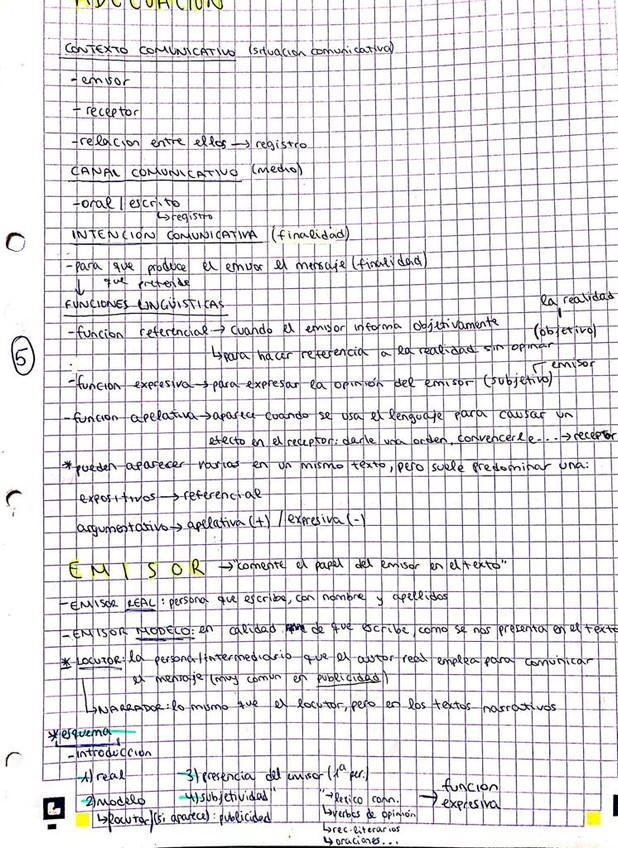 ADECUACIÓN
CONTEXTO COMUNICATIVO (situacion comunicativa)
-emisor
-receptor
-relacion entre ellos → registro
CANAL COMUNICATIVO (medio)
-oral/escrito
↳registro
INTENCION COMUNICATIVA (finalidad)
-para que produce el emisor el mensaje (finalidad)
↓ que pretende
FUNCIONES LINGÜÍSTICAS
la realidad
-funcion referencial → cuando el emisor informa objetivamente (objetivo)
↳para hacer referencia a la realidad sin opinar
emisor
-funcion expresiva → para expresar la opinión del emisor (subjetivo)
-funcion apelativa → aparece cuando se usa el lenguaje para causar un
efecto en el receptor: darle una orden, convencerle... → receptor
*pueden aparecer varias en un mismo texto, pero suele predominar una:
expositivos → referencial
argumentativo → apelativa (+) / expresiva (-)
5
EMISOR → "comente el papel del emisor en el texto"
-EMISOR REAL: persona que escribe, con nombre y apellidos
-EMISOR MODELO: en calidad de que escribe, como se nos presenta en el texto
*LOCUTOR: la persona/intermediario que el autor real emplea para comunicar
el mensaje (muy comun en publicidad)
↳NARRADOR: lo mismo que el locutor, pero en los textos narrativos
*esquema
-introduccion
1) real 3) presencia del emisor (1ª per.)
2) modelo 4) subjetividad " → lexico conn. → funcion expresiva
↳locutor (si aparece): publicidad ↳verbos de opinión
↳rec. literarios
↳oraciones...